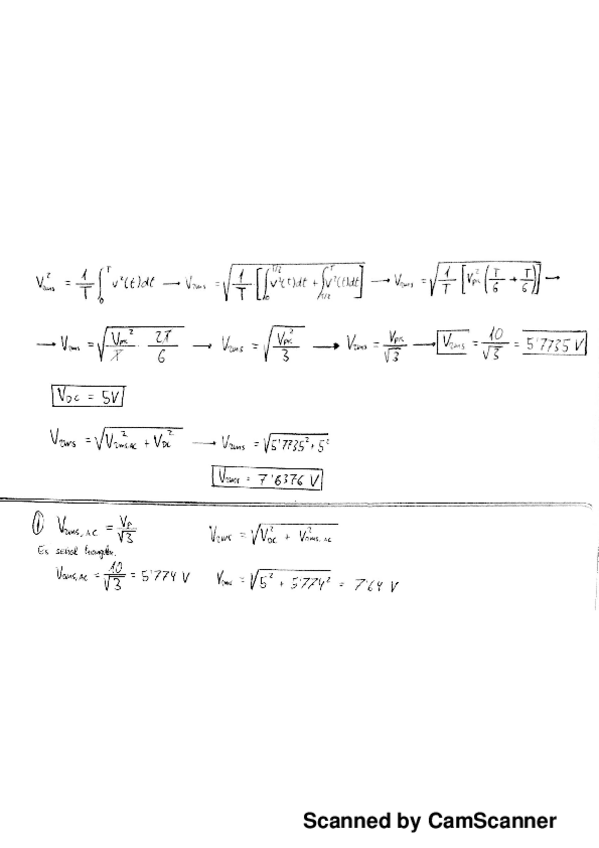 V²rms = 1/T ∫₀ᵀ v²(t)dt → Vrms = √(1/T [∫₀^(T/2) v²(t)dt + ∫_(T/2)^T v²(t)dt]) → Vrms = √(1/T [Vpk² (T/6 + T/6)]) →
→ Vrms = √(Vpk²/T · 2T/6) → Vrms = √(Vpk²/3) → Vrms = Vpk/√3 → Vrms = 10/√3 = 5'7735 V
VDC = 5V
Vrms = √(Vrms,AC² + VDC²) → Vrms = √(5'7735² + 5²)
Vrms = 7'6376 V
① Vrms, AC = Vp/√3 Vrms = √(VDC² + V²rms, AC)
Es señal triangular.
Vrms, AC = 10/√3 = 5'774 V Vrms = √(5² + 5'774²) = 7'64 V
Scanned by CamScanner